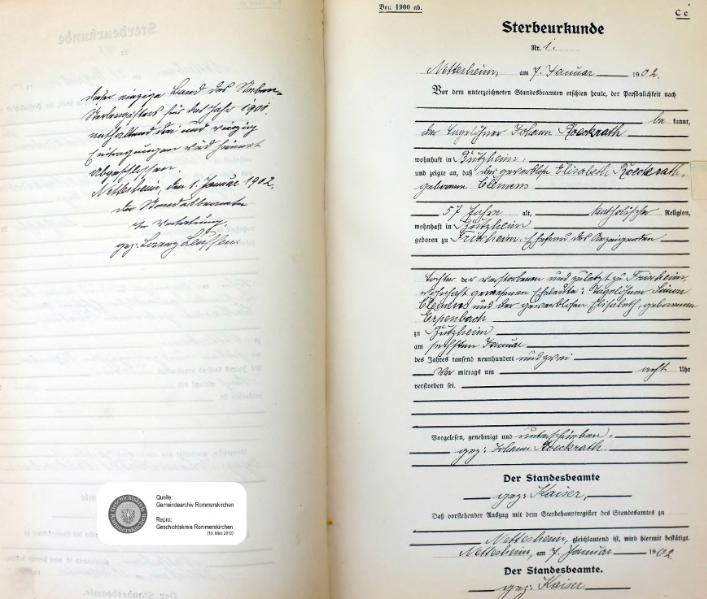 dieser einzige Band des Neben-
registers für das Jahr 1901.
enthaltend ein und vierzig
Eintragungen wird hiermit
abgeschlossen.
Nettesheim, den 1. Januar 1902.
der Standesbeamte
In Vertretung,
gez:
Quelle:
Gemeindearchiv Rommerskirchen
Repro:
Geschichtskreis Rommerskirchen
Bez. 1900 ab.
C c
Sterbeurkunde
Nr. 1.
Nettesheim, am 7. Januar 1902.
Vor dem unterzeichneten Standesbeamten erschien heute, der Persönlichkeit nach
be kannt,
der Tagelöhner Johann Roeckrath
wohnhaft in Bützheim.
und zeigte an, daß die gewerblose Elisabeth Roeckrath,
geborenen Clemens
57 Jahre alt, katholischer Religion,
wohnhaft in Bützheim
geboren zu Frixheim, Ehefrau des Anzeigenden
Tochter der verstorbenen und zuletzt zu Frixheim
wohnhaft gewesenen Eheleute: Tagelöhner Simon
Clemens und der gewerblosen Elisabeth, geborenen
Erpenbach
zu Bützheim
am sechsten Januar
des Jahres tausend neunhundert und zwei
Vor mittags um acht Uhr
verstorben sei.
Vorgelesen, genehmigt und unterschrieben.
gez: Johann Roeckrath
Der Standesbeamte
gez: Kaiser,
Daß vorstehender Auszug mit dem Sterbehauptregister des Standesamtes zu
Nettesheim, gleichlautend ist, wird hiermit bestätigt.
Nettesheim, am 7. Januar 1902
Der Standesbeamte.
gez: Kaiser